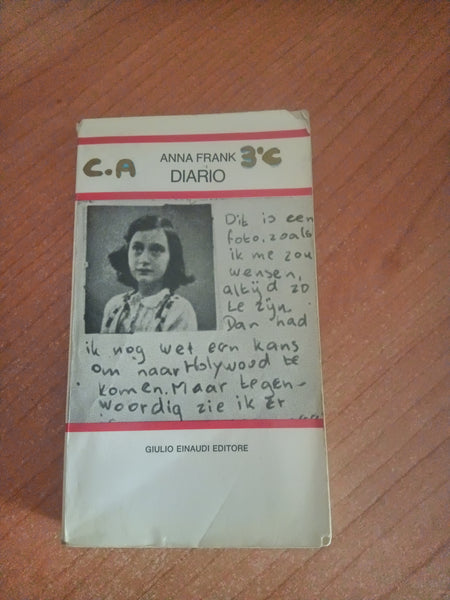 C.A ANNA FRANK 3°C
DIARIO
Dit is een
foto, zoals
ik me zou
wensen,
altijd zo
te zijn.
Dan had
ik nog wet een kans
om naar Holywood te
komen. Maar tegen-
woordig zie ik er
GIULIO EINAUDI EDITORE